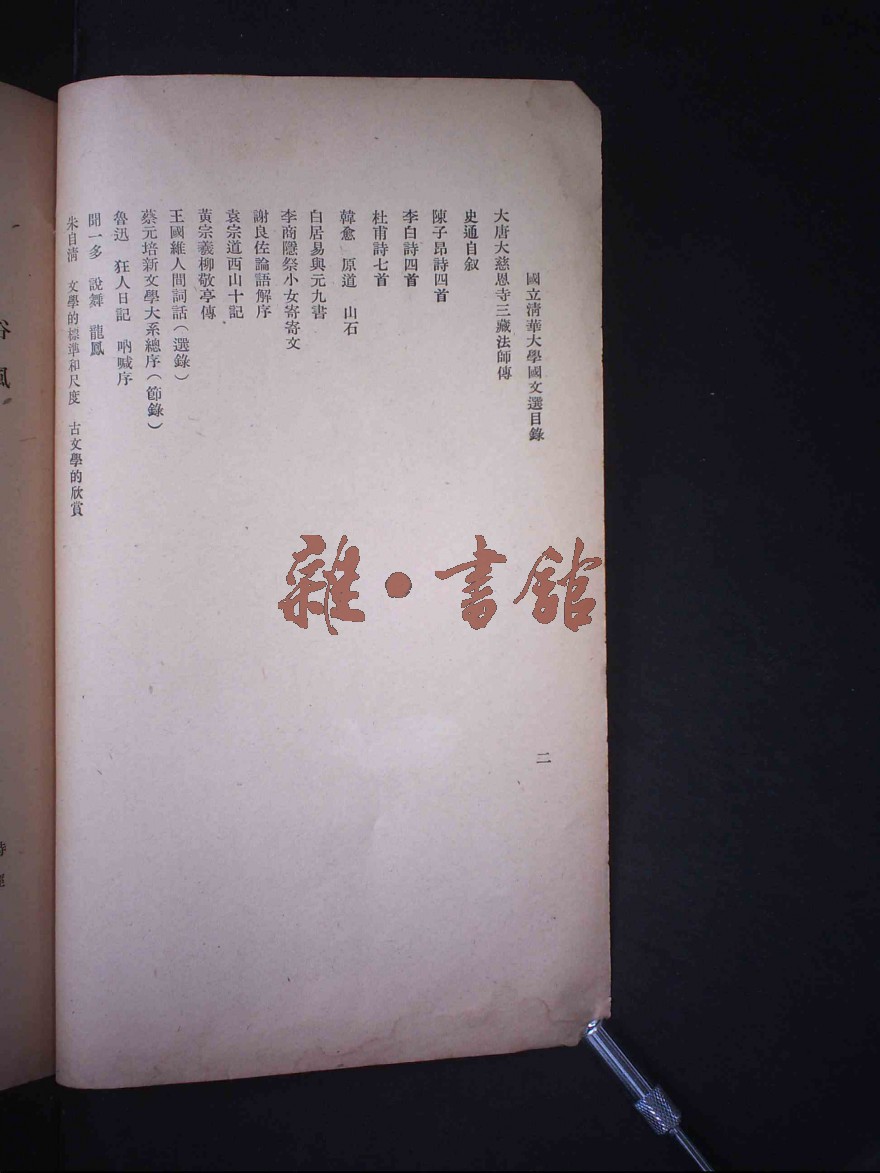 國立清華大學國文選目錄
二
大唐大慈恩寺三藏法師傳
史通自叙
陳子昂詩四首
李白詩四首
杜甫詩七首
韓愈　原道　山石
白居易與元九書
李商隱祭小女寄寄文
謝良佐論語解序
袁宗道西山十記
黃宗羲柳敬亭傳
王國維人間詞話（選錄）
蔡元培新文學大系總序（節錄）
魯迅　狂人日記　吶喊序
聞一多　說舞　龍鳳
朱自清　文學的標準和尺度　古文學的欣賞
雜·書館